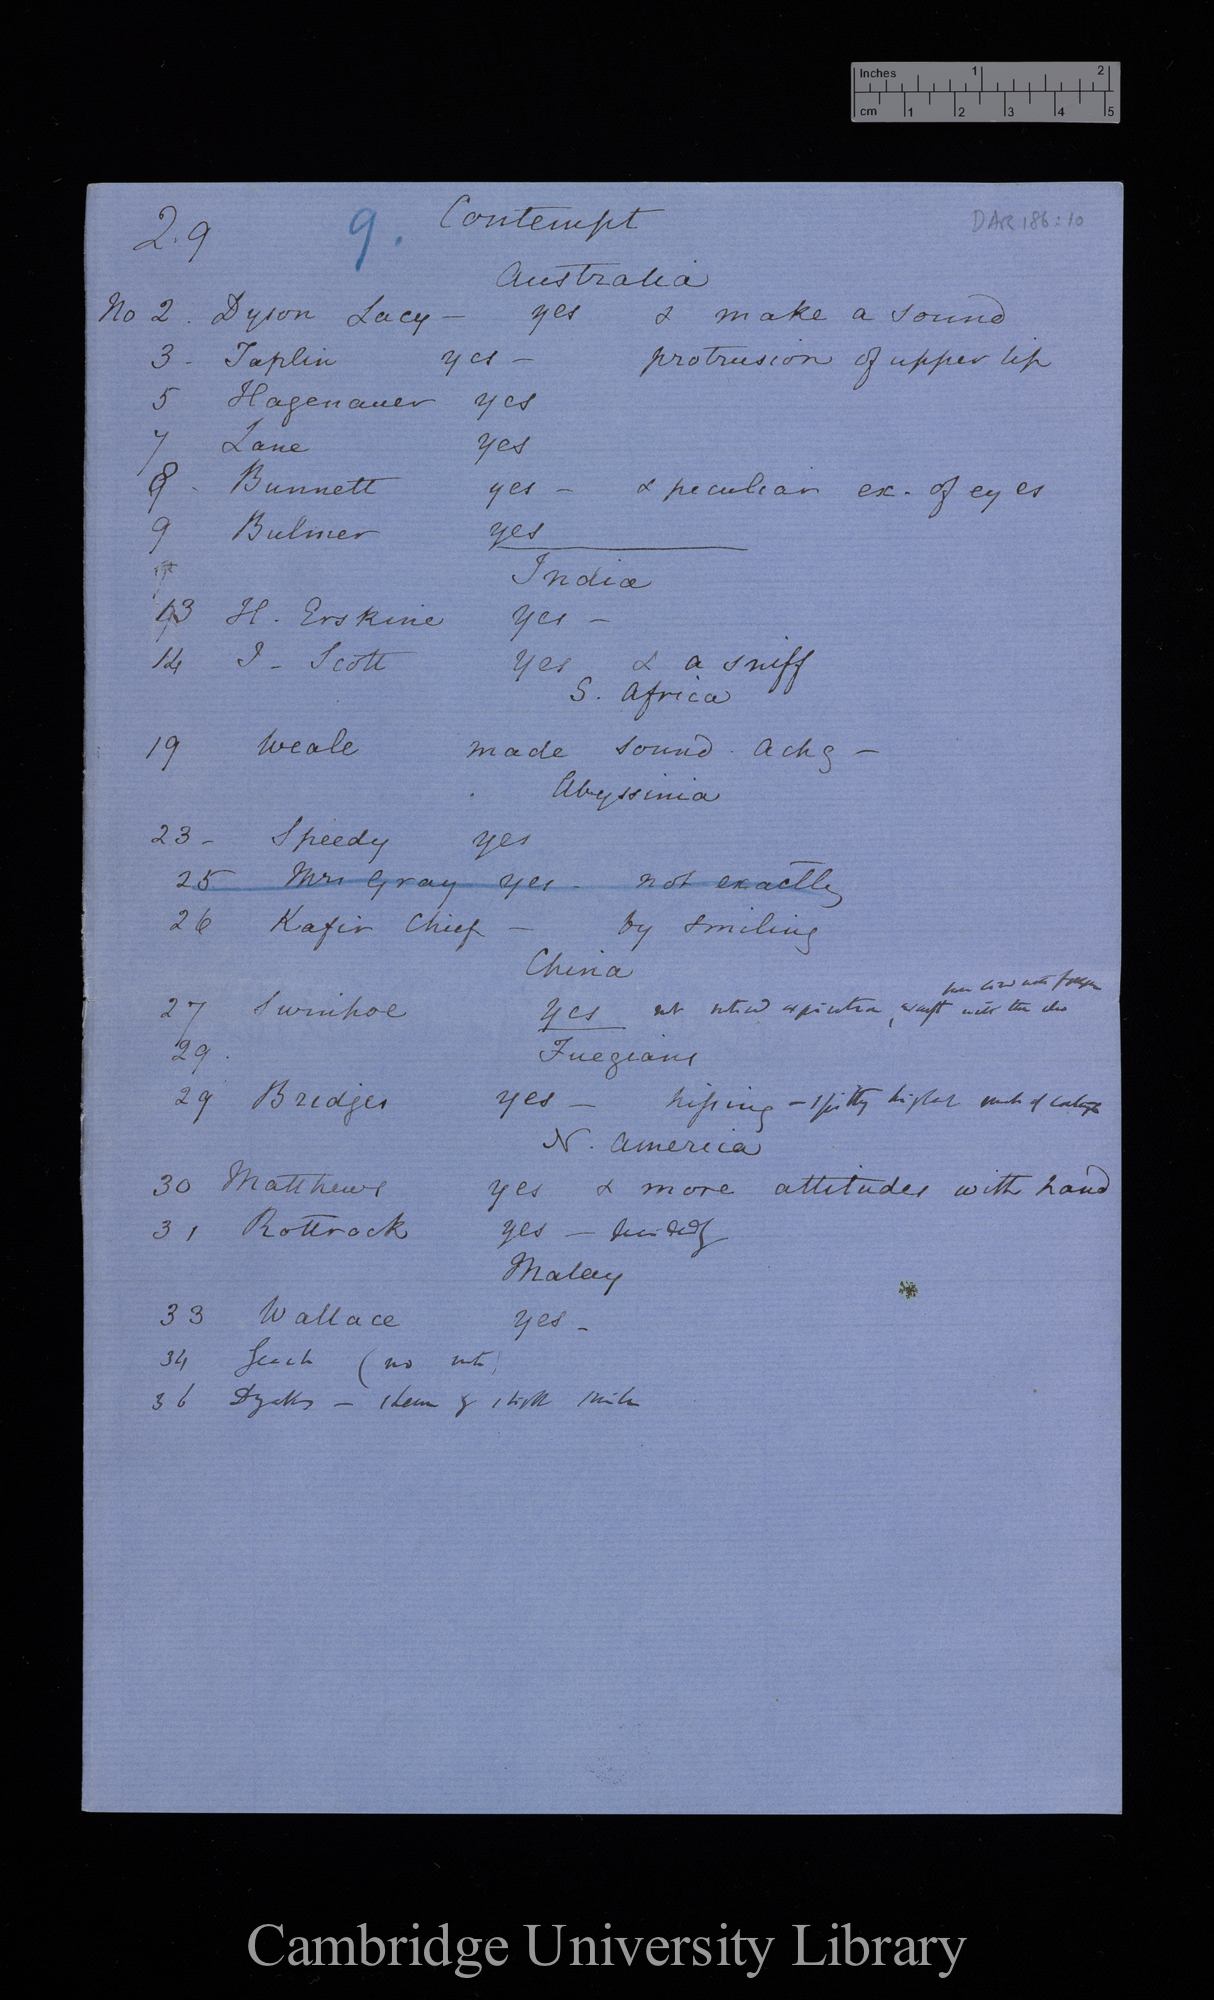 Inches 1 2
cm 1 2 3 4 5
2.9 9. Contempt DAR 186:10
Australia
No 2. Dyson Lacy — yes & make a sound
3 - Taplin yes — protrusion of upper lip
5 Hagenauer yes
7 Lane yes
8 - Bunnett yes — & peculiar ex. of eyes
9 Bulmer yes
India
13 H. Erskine yes —
14 J - Scott yes & a sniff
S. Africa
19 Weale made sound. Achg —
Abyssinia
23 - Speedy yes
25 Mrs Gray yes - not exactly
26 Kafir Chief — by smiling
China
27 Swinhoe yes not expiration, except
29. Fuegians
29 Bridges yes — hissing — spitting highest mark of contempt
N. America
30 Matthews yes & more attitudes with hand
31 Rothrock yes —
Malay
33 Wallace yes -
34 Geach (no note)
36 Dyaks — smile
Cambridge University Library